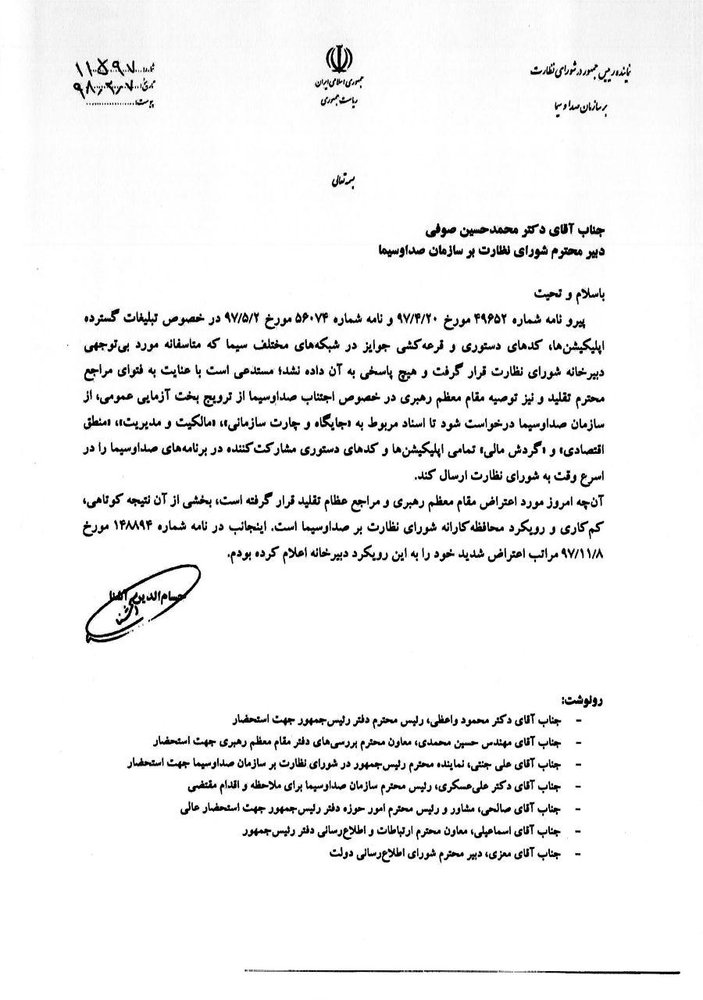 نماینده رییس جمهور در شورای نظارت
بر سازمان صدا و سیما
جمهوری اسلامی ایران
ریاست جمهوری
شماره: ۱۱۵۹۷
تاریخ: ۹۸٫۲٫۰۷
پیوست:
بسمه تعالی
جناب آقای دکتر محمدحسین صوفی
دبیر محترم شورای نظارت بر سازمان صداوسیما
باسلام و تحیت
پیرو نامه شماره ۴۹۶۵۲ مورخ ۹۷/۴/۲۰ و نامه شماره ۵۶۰۷۴ مورخ ۹۷/۵/۲ در خصوص تبلیغات گسترده
اپلیکیشن‌ها، کدهای دستوری و قرعه‌کشی جوایز در شبکه‌های مختلف سیما که متاسفانه مورد بی‌توجهی
دبیرخانه شورای نظارت قرار گرفت و هیچ پاسخی به آن داده نشد؛ مستدعی است با عنایت به فتوای مراجع
محترم تقلید و نیز توصیه مقام معظم رهبری در خصوص اجتناب صداوسیما از ترویج بخت آزمایی عمومی، از
سازمان صداوسیما درخواست شود تا اسناد مربوط به «جایگاه و چارت سازمانی»، «مالکیت و مدیریت»، «منطق
اقتصادی» و «گردش مالی» تمامی اپلیکیشن‌ها و کدهای دستوری مشارکت‌کننده در برنامه‌های صداوسیما را در
اسرع وقت به شورای نظارت ارسال کند.
آن‌چه امروز مورد اعتراض مقام معظم رهبری و مراجع عظام تقلید قرار گرفته است، بخشی از آن نتیجه کوتاهی،
کم‌کاری و رویکرد محافظه‌کارانه شورای نظارت بر صداوسیما است. اینجانب در نامه شماره ۱۴۸۸۹۴ مورخ
۹۷/۱۱/۸ مراتب اعتراض شدید خود را به این رویکرد دبیرخانه اعلام کرده بودم.
حسام‌الدین آشنا
رونوشت:
- جناب آقای دکتر محمود واعظی، رئیس محترم دفتر رئیس‌جمهور جهت استحضار
- جناب آقای مهندس حسین محمدی، معاون محترم بررسی‌های دفتر مقام معظم رهبری جهت استحضار
- جناب آقای علی جنتی، نماینده محترم رئیس‌جمهور در شورای نظارت بر سازمان صداوسیما جهت استحضار
- جناب آقای دکتر علی‌عسکری، رئیس محترم سازمان صداوسیما برای ملاحظه و اقدام مقتضی
- جناب آقای صالحی، مشاور و رئیس محترم امور حوزه دفتر رئیس‌جمهور جهت استحضار عالی
- جناب آقای اسماعیلی، معاون محترم ارتباطات و اطلاع‌رسانی دفتر رئیس‌جمهور
- جناب آقای معزی، دبیر محترم شورای اطلاع‌رسانی دولت